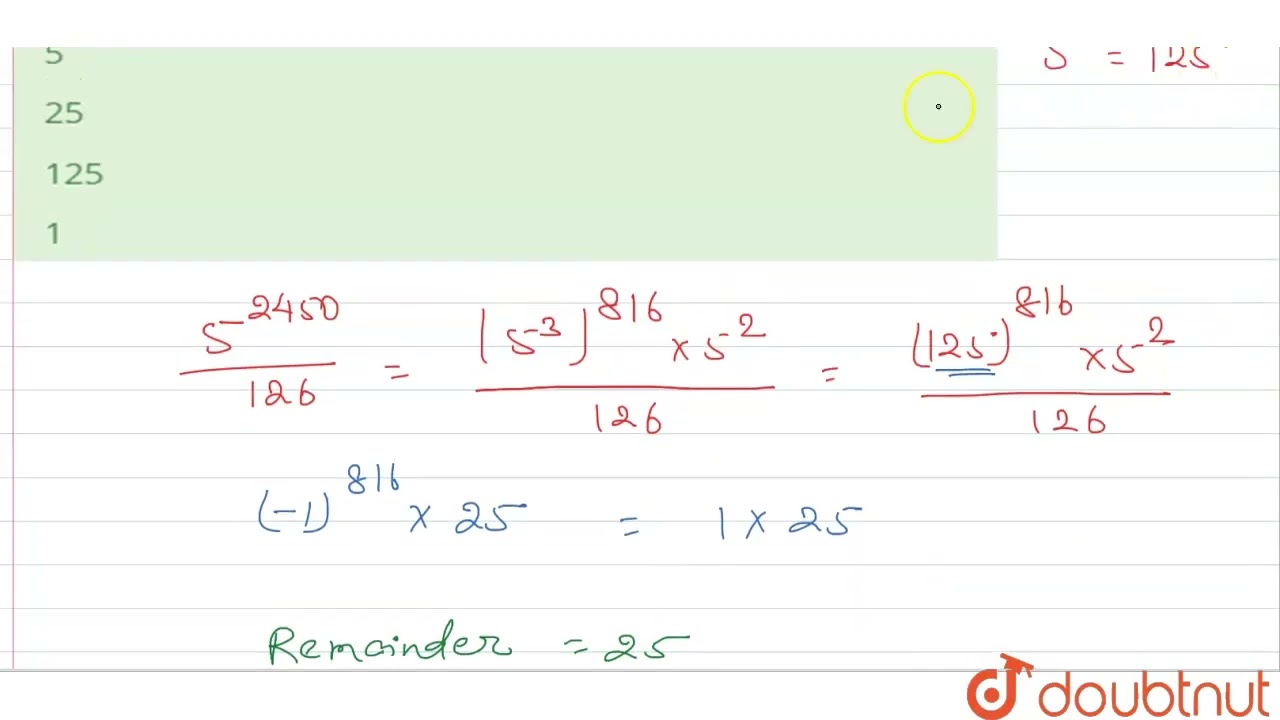 5
5 = 125
25
125
1
5^2450 / 126 = (5^3)^816 × 5^2 / 126 = (125)^816 × 5^2 / 126
(-1)^816 × 25 = 1 × 25
Remainder = 25
doubtnut